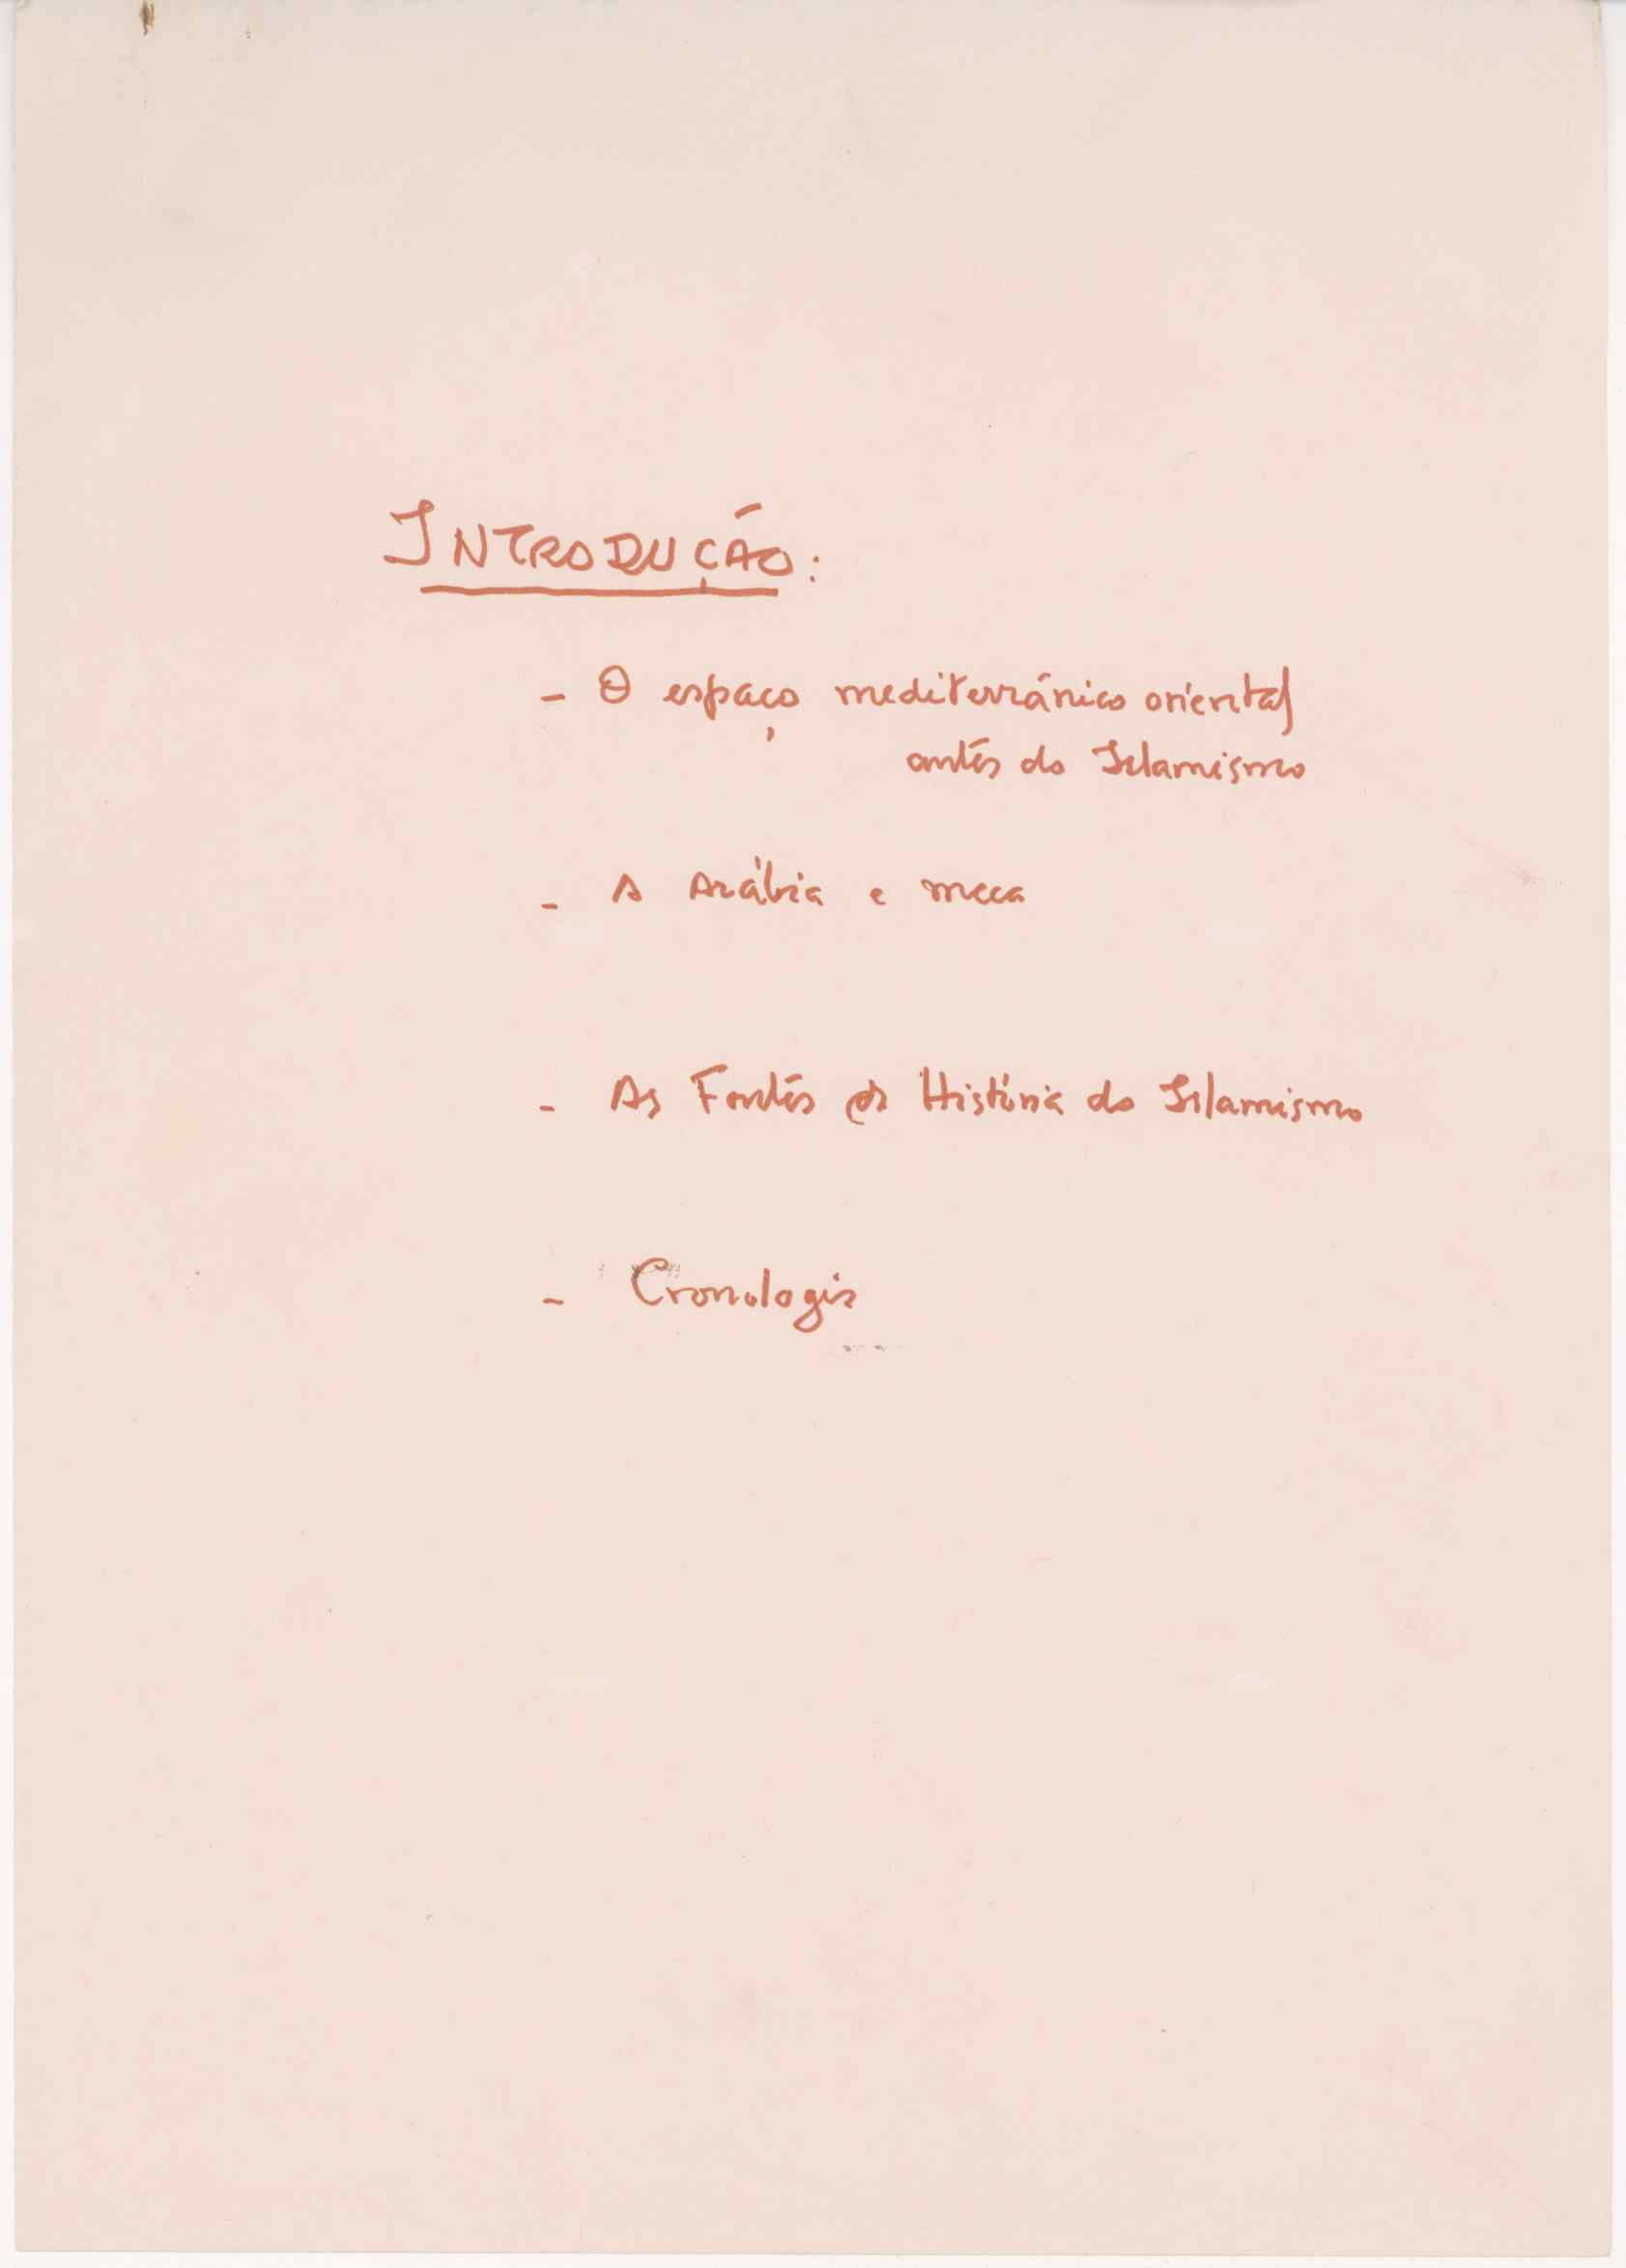 INTRODUÇÃO:
- O espaço mediterrânico oriental
antes do Islamismo
- A Arábia e meca
- As Fontes da História do Islamismo
- Cronologia